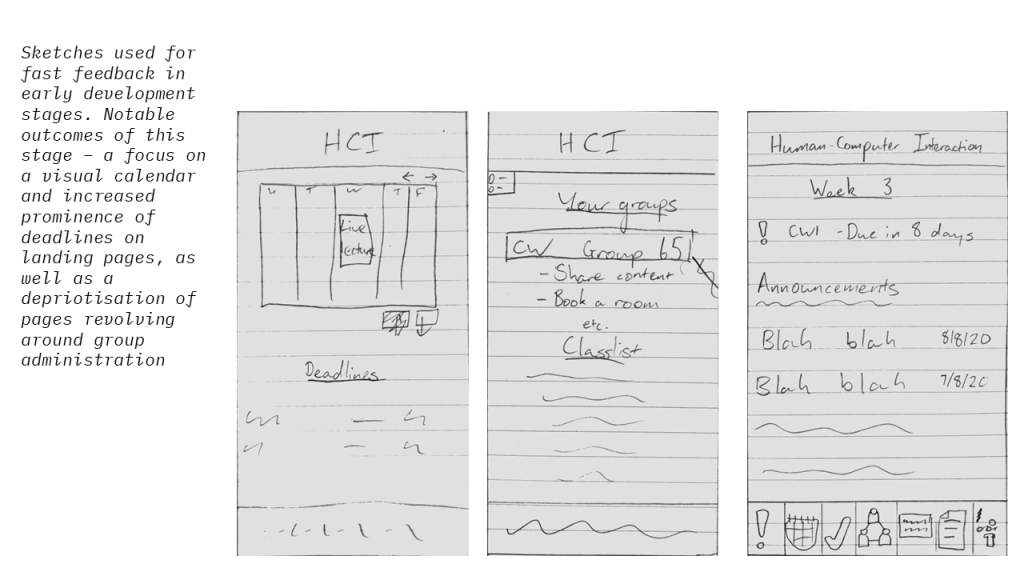 Sketches used for
fast feedback in
early development
stages. Notable
outcomes of this
stage – a focus on
a visual calendar
and increased
prominence of
deadlines on
landing pages, as
well as a
depriotisation of
pages revolving
around group
administration
HCI
T W T F
Live
lecture
Deadlines
HCI
Your groups
CW Group 65
- Share content
- Book a room
etc.
Classlist
Human-Computer Interaction
Week 3
! CW1 - Due in 8 days
Announcements
Blah blah 8/8/20
Blah blah 7/8/20